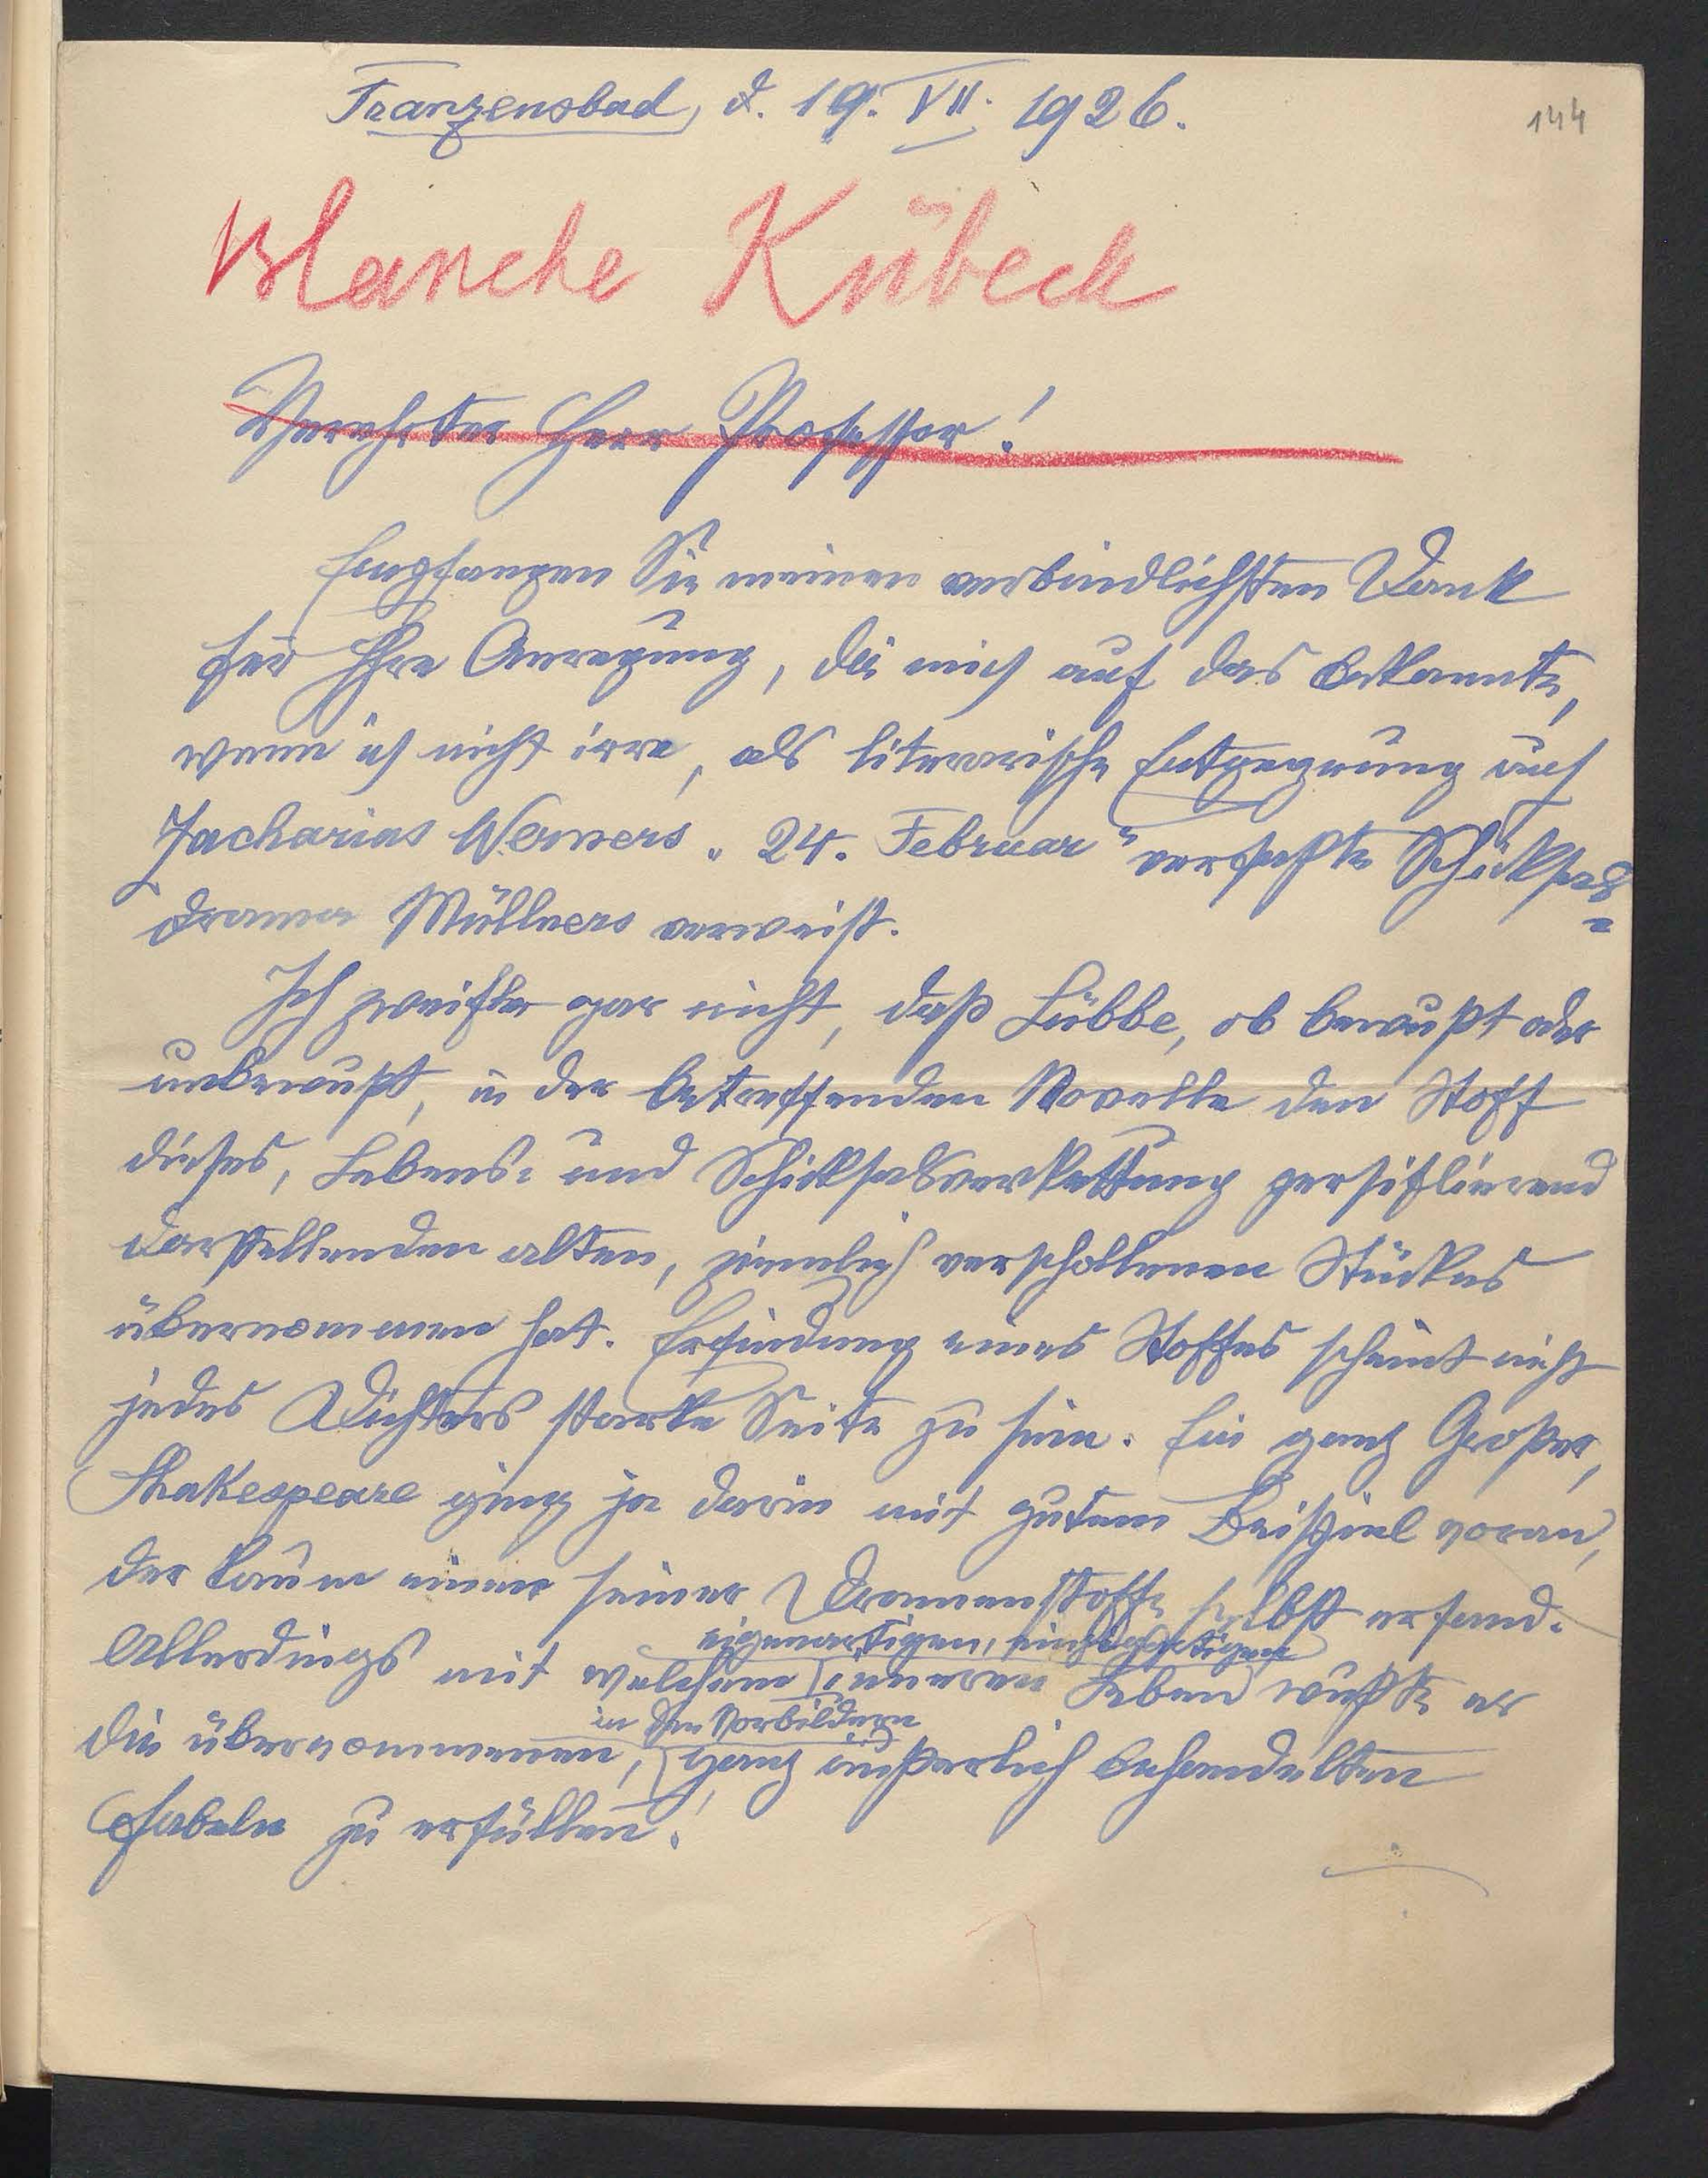 Franzensbad, d. 19. VII. 1926.
144
Blanche Kübeck
Verehrter Herr Professor!
Empfangen Sie meinen verbindlichsten Dank
für Ihre Anregung, die mich auf das bekannte,
wenn ich nicht irre, als literarische Entgegnung auf
Zacharias Werners „24. Februar" verfaßte Schicksals=
drama Müllners verweist.
Ich zweifle gar nicht, daß Lübbe, ob bewußt oder
unbewußt, in der betreffenden Novelle den Stoff
dieses, Lebens= und Schicksalsverkettung persiflierend
darstellenden alten, ziemlich verschollenen Stückes
übernommen hat. Erfindung eines Stoffes scheint nicht
jedes Dichters starke Seite zu sein. Ein ganz Großer,
Shakespeare ging ja darin mit gutem Beispiel voran,
der kaum einen seiner Dramenstoffe selbst erfand.
eigenartigen,
Allerdings mit welchem inneren Leben wußte er
in den Vorbildern
die übernommenen, ganz äußerlich behandelten
Fabeln zu erfüllen!